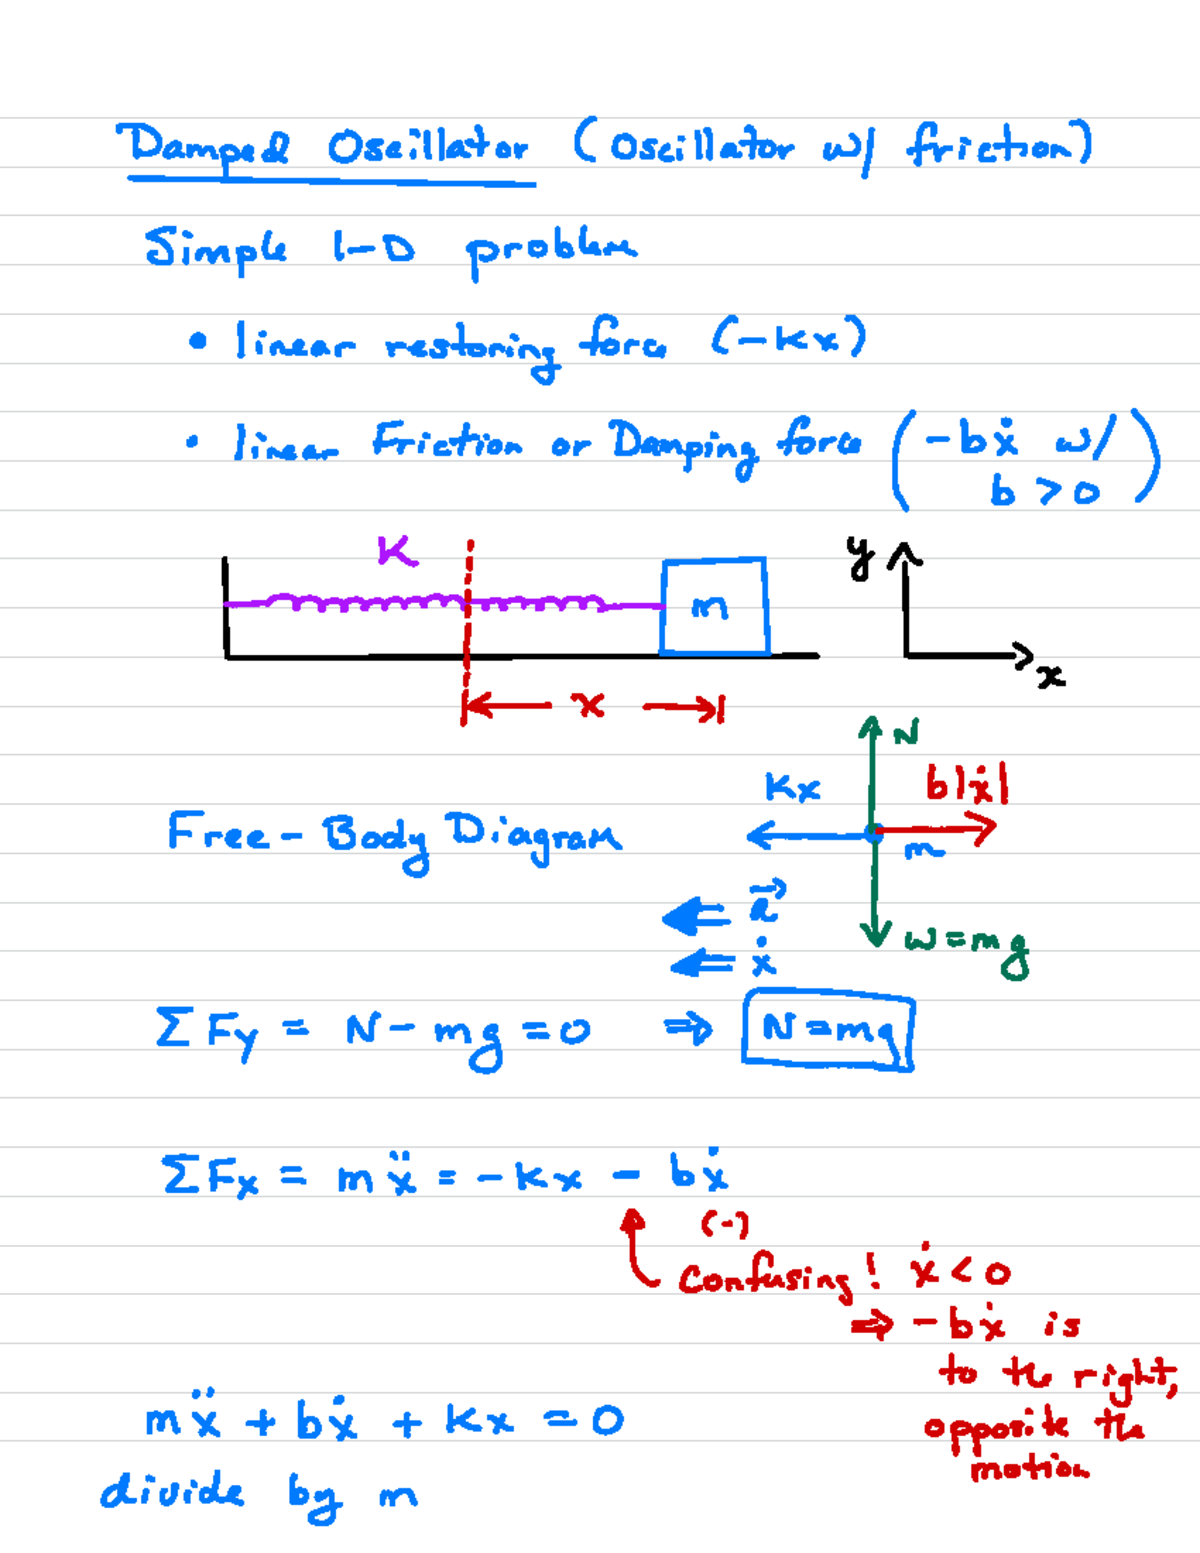 Damped Oscillator (Oscillator w/ friction)
Simple 1-D problem
• linear restoring force (-kx)
• linear Friction or Damping force (-bẋ w/
b > 0)
K
m
y
x
x
N
kx
b|ẋ|
Free-Body Diagram
m
a⃗
w = mg
ẋ
ΣFy = N - mg = 0 ⇒ N = mg
ΣFx = mẍ = -kx - bẋ
(-)
Confusing! ẋ < 0
⇒ -bẋ is
to the right,
opposite the
motion
mẍ + bẋ + kx = 0
divide by m